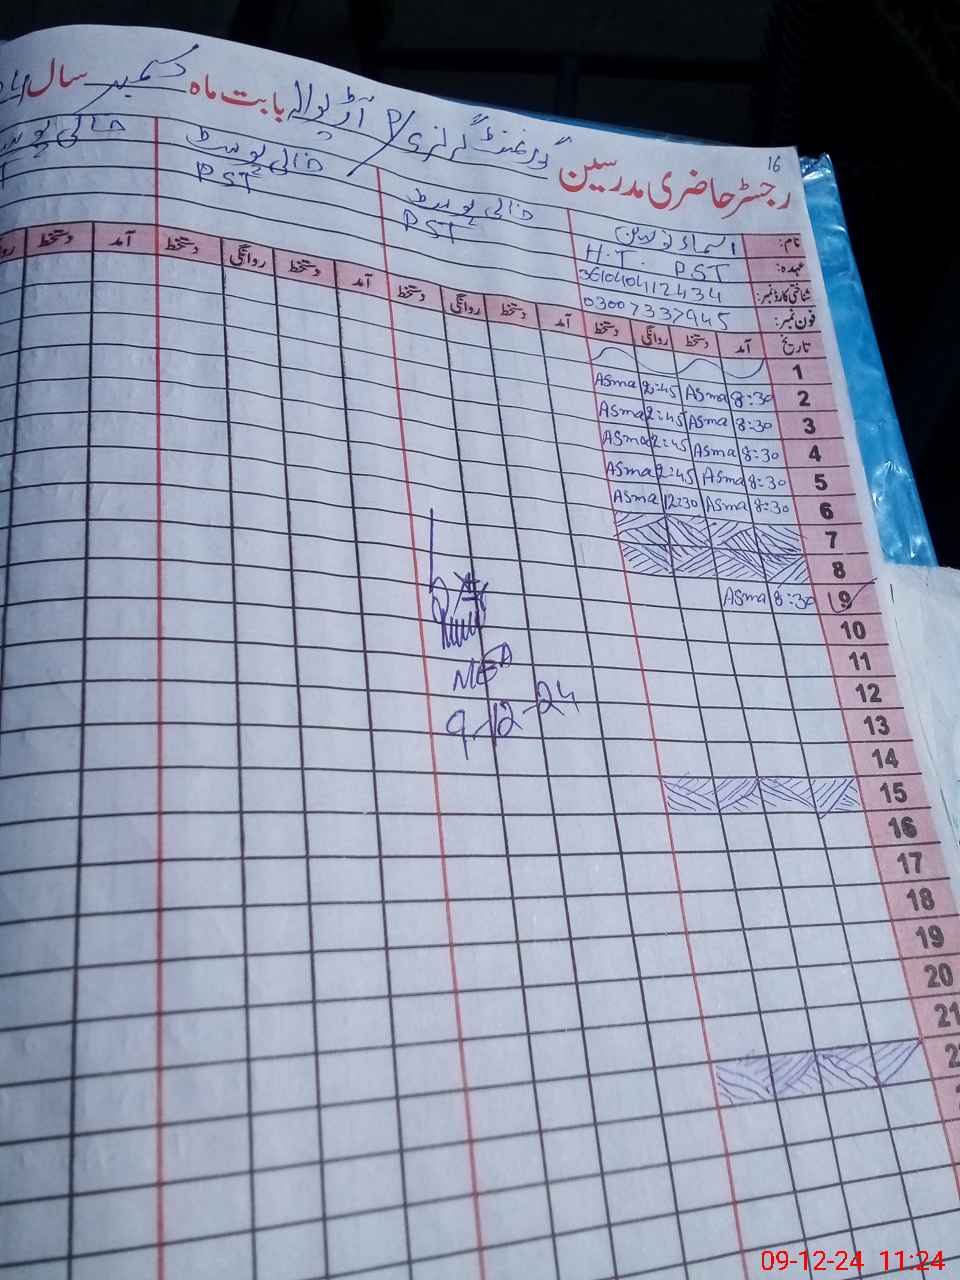 16
رجسٹر حاضری مدرسین گورنمنٹ گرلز P/S بابت ماہ دسمبر سال
نام: اسماء نورین خالی پوسٹ خالی پوسٹ خالی پوسٹ
عہدہ: H.T. PST PST PST
شناختی کارڈ نمبر: 3610404112434
فون نمبر: 03007337945
تاریخ آمد دستخط روانگی دستخط آمد دستخط روانگی دستخط آمد دستخط روانگی دستخط آمد دستخط
1
2 8:30 Asma 2:45 Asma
3 8:30 Asma 2:45 Asma
4 8:30 Asma 2:45 Asma
5 8:30 Asma 2:45 Asma
6 8:30 Asma 12:30 Asma
7
8
9 8:30 Asma
10
11
12
13
14
15
16
17
18
19
20
21
9-12-24
09-12-24 11:24